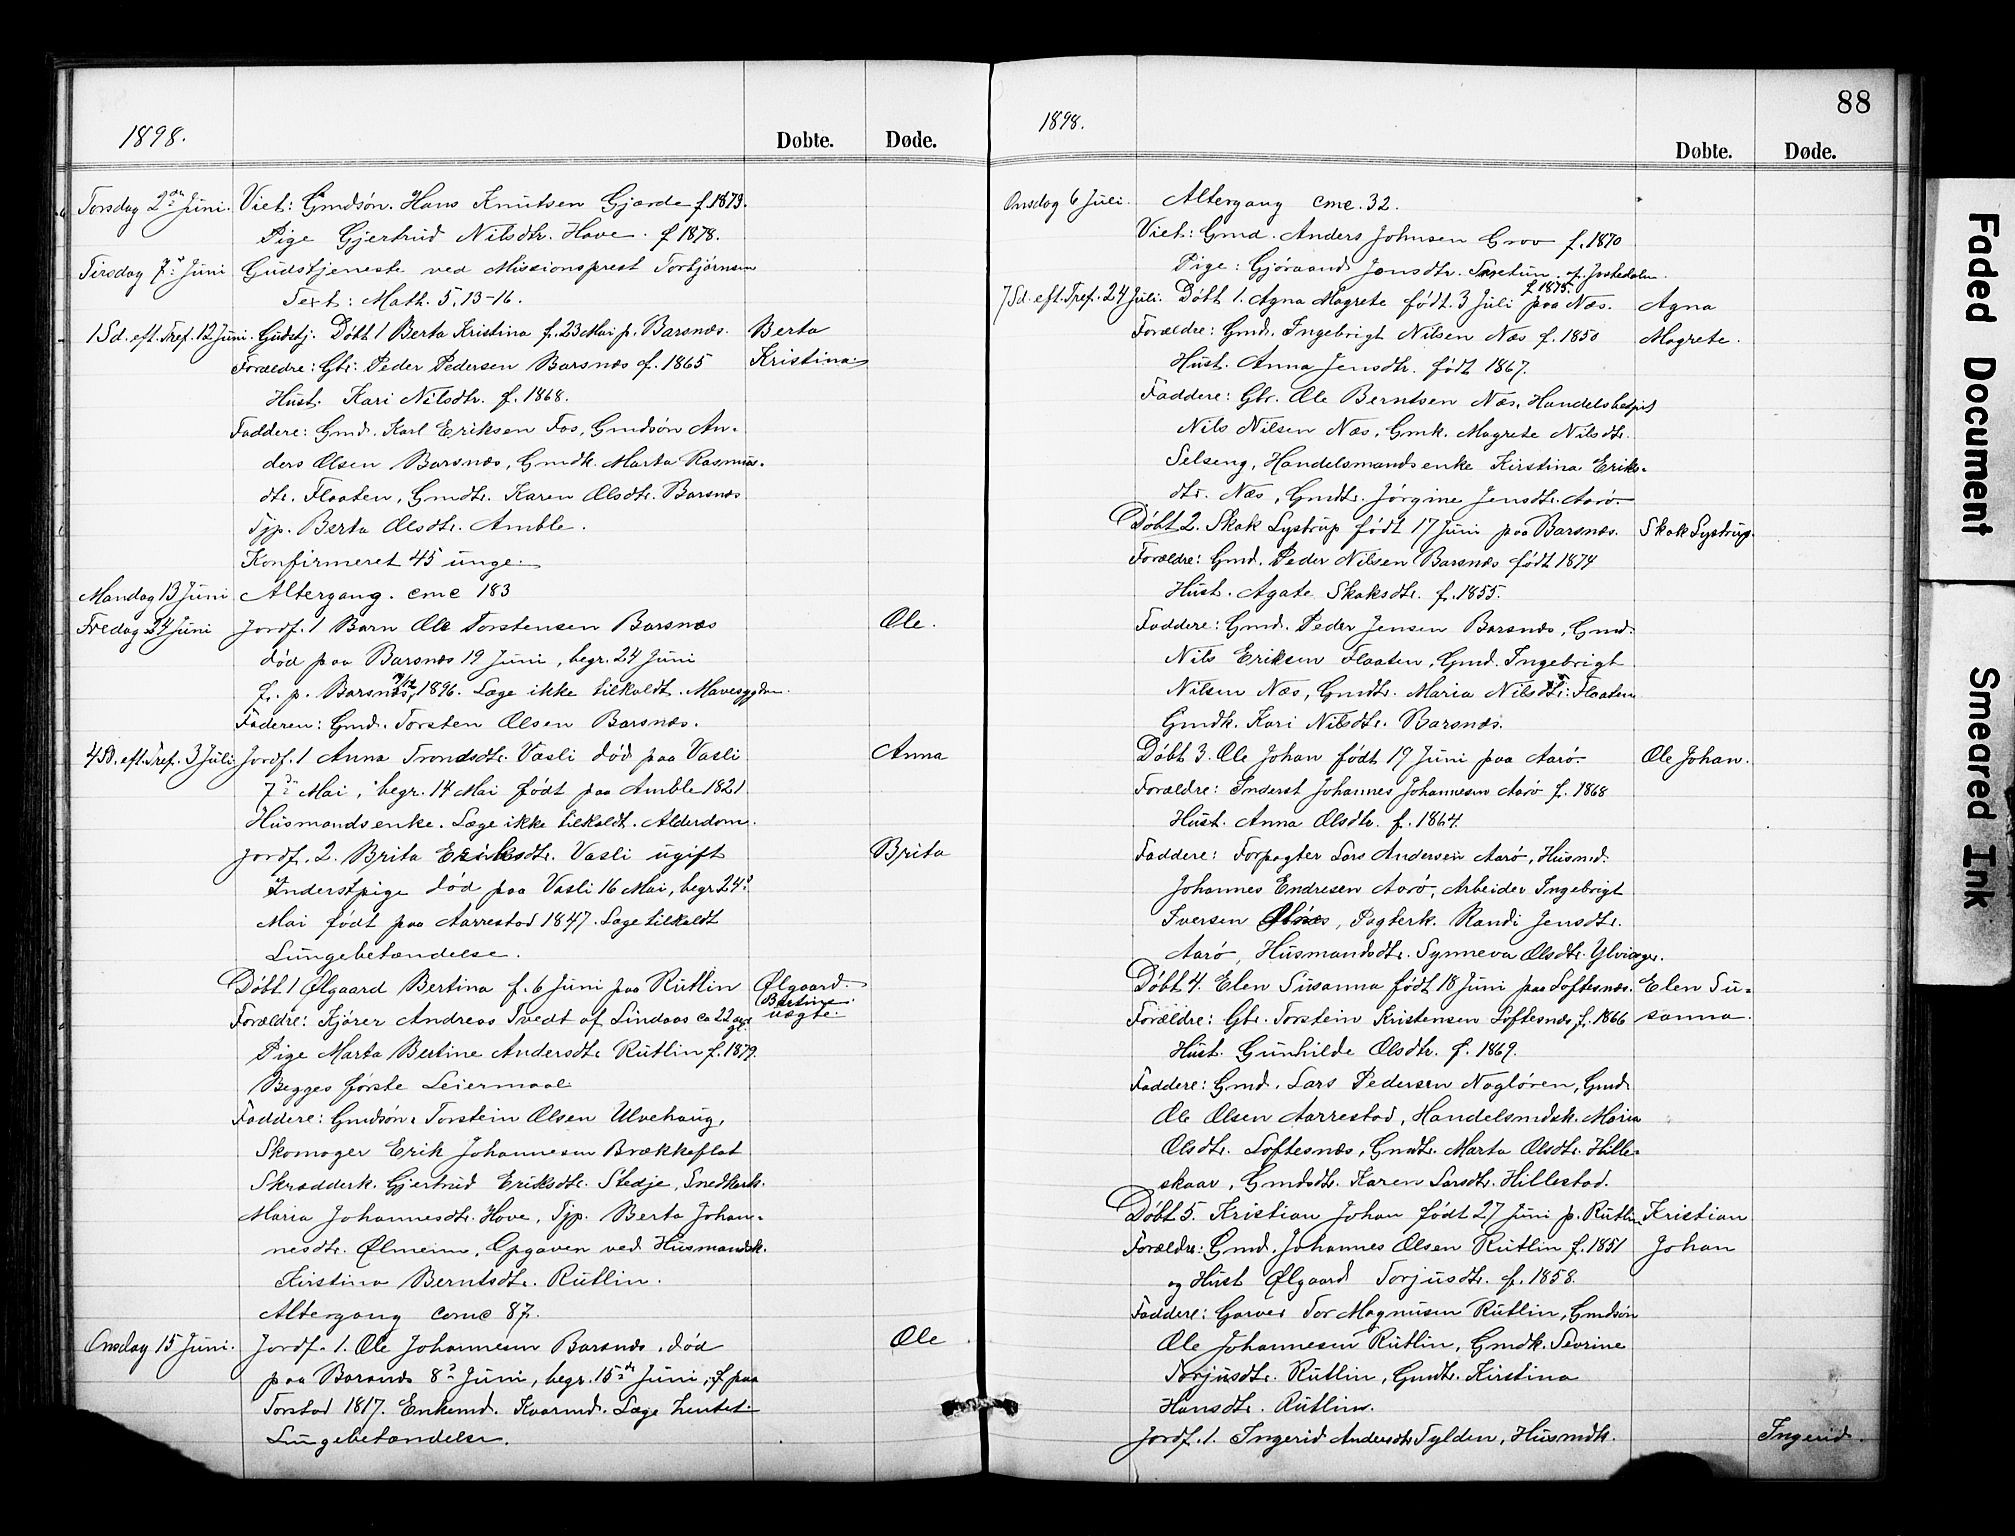 1898.
Døbte.
Døde.
Torsdag 2den Juni. Viet: Gmdsøn. Hans Knutsen Gjærde f. 1873.
Pige Gjertrud Nilsdtr. Hove. f 1878.
Tirsdag 7de Juni Gudstjeneste ved Missionsprest Torbjørnsen
Text: Math. 5, 13-16.
1 Sd. eft. Tref. 12 Juni. Gudstj. Døbt 1 Berta Kristina f. 23 Mai p. Barsnæs. Berta
Forældre: Gbr. Peder Pedersen Barsnæs f. 1865 Kristina.
Hust. Kari Nilsdtr. f. 1868.
Faddere: Gmd. Karl Eriksen Fos, Gmdsøn An-
ders Olsen Barsnæs, Gmdk. Marta Rasmus-
dtr. Flaaten, Gmdtr. Karen Olsdtr. Barsnæs
Tjp. Berta Olsdtr. Amble.
Konfirmeret 45 unge.
Mandag 13 Juni Altergang. cme 183
Fredag 24 Juni Jordf. 1 Barn Ole Torstensen Barsnæs Ole.
død paa Barsnæs 19 Juni, begr. 24 Juni
f. p. Barsnæs, 1896. Læge ikke tilkaldt. Mavesygdom.
Faderen: Gmd. Torsten Olsen Barsnæs.
4 Sd. eft. Tref. 3 Juli Jordf. 1 Anna Trondsdtr. Vasli død paa Vasli Anna
7de Mai, begr. 14 Mai født paa Amble 1821
Husmandsenke. Læge ikke tilkaldt. Alderdom.
Jordf. 2. Brita Eriksdtr. Vasli ugift Brita
Inderstpige død paa Vasli 16 Mai, begr. 24de
Mai født paa Aarrestad 1847. Læge tilkaldt
Lungebetændelse.
Døbt 1 Ølgaard Bertina f. 6 Juni paa Rutlin Ølgaard.
Bertine.
Forældre: Kjører Andreas Tvedt af Lindaas ca 22 aar uægte.
Pige Marta Bertine Andersdtr. Rutlin f. 1879.
Begges første Leiermaal
Faddere: Gmdsøn. Torstein Olsen Ulvehaug,
Skomager Erik Johannesen Brækkeflat
Skrædderk. Gjertrud Eriksdtr. Stedje, Snedkerk.
Maria Johannesdtr. Hove, Tjp. Berta Johan-
nesdtr. Ølmeim, Opgaven ved Husmandsk.
Kirstina Berntsdtr. Rutlin.
Altergang come 87.
Onsdag 15 Juni. Jordf. 1. Ole Johannesen Barsnæs. død Ole
paa Barsnæs 8de Juni, begr. 15de Juni, f paa
Torstad 1817. Enkemd. Kaarmd. Læge hentet
Lungebetændelse.
1898.
88
Døbte.
Døde.
Onsdag 6 Juli. Altergang cme. 32.
Viet: Gmd. Anders Johnsen Grov f. 1870
Pige: Gjøraand Jensdtr. Sperle­tun af Jostedalen
f. 1875.
7 Sd. eft. Tref. 24 Juli. Døbt 1. Agna Magrete født 3 Juli paa Næs. Agna
Forældre: Gmd. Ingebrigt Nilsen Næs f. 1850 Magrete.
Hust. Anna Jensdtr. født 1867.
Faddere: Gbr. Ole Berntsen Næs, Handelsbetjent
Nils Nilsen Næs, Gmk. Magrete Nilsdtr.
Selseng, Handelsmandsenke Kirstina Eriks-
dtr. Næs, Gmdtr. Jørgine Jensdtr. Aarø.
Døbt 2. Skak Lystrup født 17 Juni paa Barsnæs. Skak Lystrup.
Forældre: Gmd. Peder Nilsen Barsnæs født 1874
Hust. Agate Skaksdtr. f. 1855.
Faddere: Gmd. Peder Jensen Barsnæs, Gmd.
Nils Eriksen Flaaten, Gmd. Ingebrigt
Nilsen Næs, Gmdtr. Maria Nilsdtr. Flaaten
Gmdk. Kari Nilsdtr. Barsnæs.
Døbt 3. Ole Johan født 19 Juni paa Aarø. Ole Johan.
Forældre: Inderst Johannes Johannesen Aarø f. 1868
Hust. Anna Olsdtr. f. 1864.
Faddere: Forpagter Lars Andersen Aarø, Husmd.
Johannes Endresen Aarø, Arbeider Ingebrigt
Iversen, Pagterk. Randi Jensdtr.
Aarø, Husmandsdtr. Synneva Olsdtr. Ylvisager.
Døbt 4. Elen Susanna født 18 Juni paa Loftesnæs. Elen Su-
Forældre: Gbr. Torstein Kristensen Loftesnæs, f. 1866 sanna.
Hust. Gunhilde Olsdtr. f. 1869.
Faddere: Gmd. Lars Pedersen Nagløren, Gmd.
Ole Olsen Aarrestad, Handelsmdsk. Maria
Olsdtr. Loftesnæs, Gmdtr. Marta Olsdtr. Hille-
skaar, Gmdsdtr. Karen Larsdtr. Hillestad.
Døbt 5. Kristian Johan født 27 Juni p. Rutlin Kristian
Forældre: Gmd. Johannes Olsen Rutlin f. 1851 Johan
og Hust Ølgaard Torjusdtr. f. 1858.
Faddere: Garver Tor Magnusen Rutlin, Gmdsøn
Ole Johannesen Rutlin, Gmdk. Sevrine
Torjusdtr. Rutlin, Gmdtr. Kirstina
Hansdtr. Rutlin.
Jordf. 1. Ingerid Andersdtr Sylden, Husmdk. Ingerid.
Faded Document
Smeared Ink